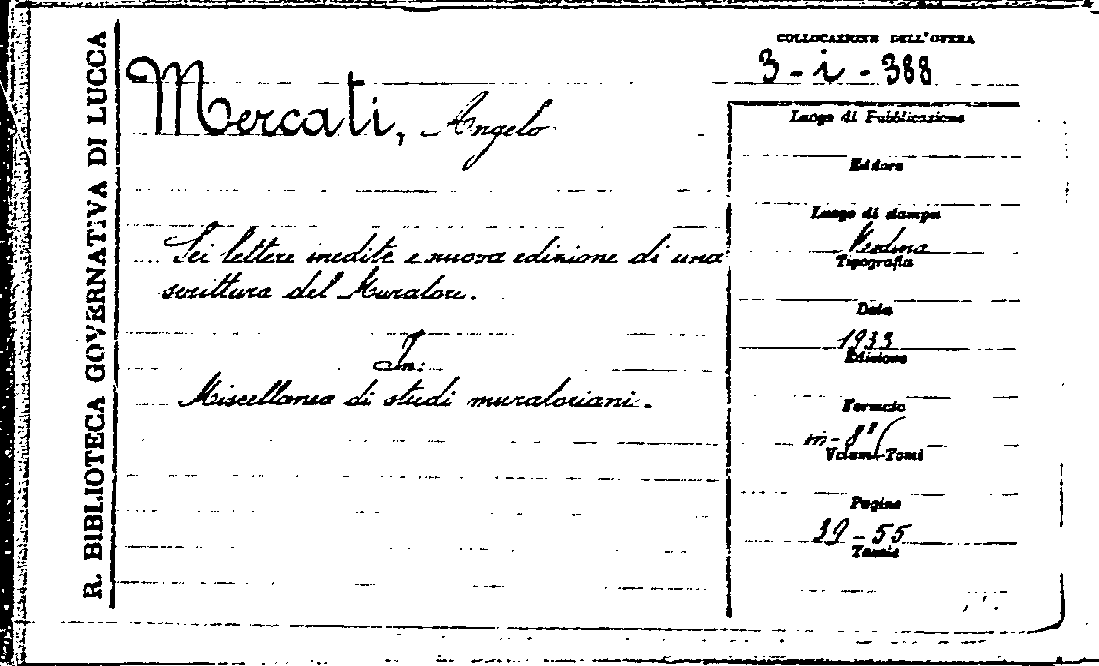 R. BIBLIOTECA GOVERNATIVA DI LUCCA
Mercati, Angelo
Sei lettere inedite e nuova edizione di una
scrittura del Muratori.
In:
Miscellanea di studi muratoriani.
COLLOCAZIONE DELL'OPERA
3-i-388
Luogo di Pubblicazione
Editore
Luogo di stampa
Tipografia
Data
1933
Edizione
Formato
in-8°
Volumi-Tomi
Pagine
39-55
Tavole